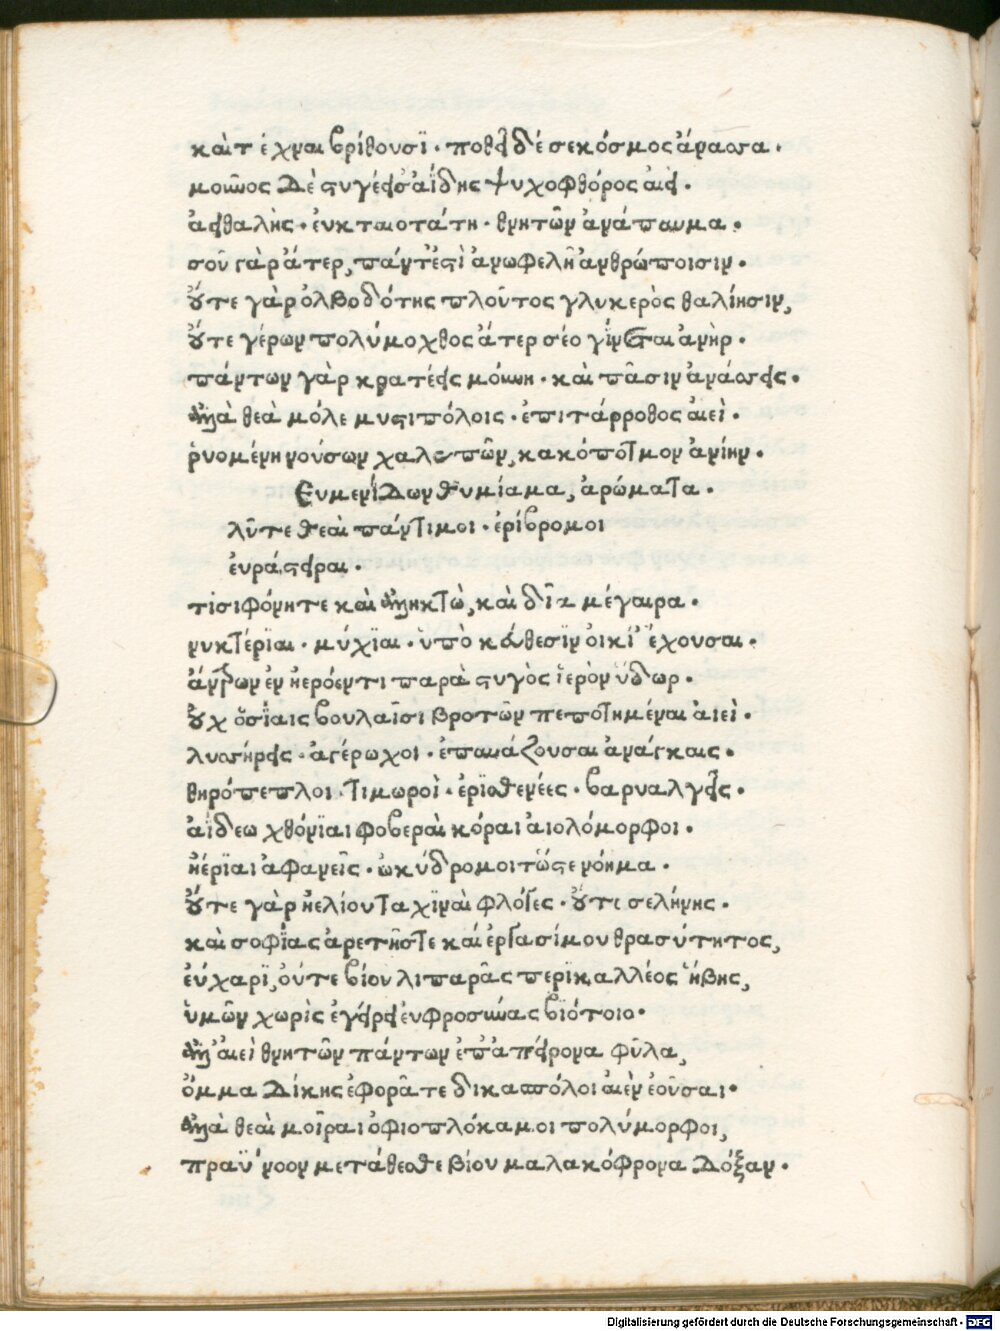 καὶ τέχναι βρίθουσϊ· ποθεῖ δέ σε κόσμος ἄνασσα·
μοῦνος Δὲ στυγέει σ' ἀΐδης ψυχοφθόρος αἰεί·
ἀειθαλὴς· ἐυκταιοτάτη· θνητῶν ἀνάπαυμα·
σοῦ γὰρ ἄτερ, πάντ' ἐστὶ ἀνωφελῆ ἀνθρώποισιν·
οὔτε γὰρ ὀλβοδότης πλοῦτος γλυκερὸς θαλίησιν,
οὔτε γέρων πολύμοχθος ἄτερ σέο γίνεται ἀνὴρ·
πάντων γὰρ κρατέεις μόυνη· καὶ πᾶσιν ἀνάσσεις·
ἀλλὰ θεὰ μόλε μυστιπόλοις· ἐπιτάρροθος αἰεὶ·
ῥυομένη νούσων χαλεπῶν, κακόποτμον ἀνίην·
Ευμενίδων θυμίαμα, ἀρώματα·
λῦτε θεαὶ πάντιμοι· ἐρίβρομοι
ἐυάστειραι·
τισιφόνη τε καὶ ἀλληκτὼ, καὶ δῖα μέγαιρα·
νυκτέρϊαι· μύχϊαι· ὑπὸ κεύθεσϊν ὀικί' ἔχουσαι·
ἄντρων ἐν ἠερόεντι παρὰ στυγὸς ἱερὸν ὕδωρ·
οὐχ ὁσΐαις βουλαῖσι βροτῶν πεποτημέναι αἰεὶ·
λυσσήρεις· ἀγέρωχοι· ἐπευάζουσαι ἀνάγκαις·
θηρόπεπλοι· τιμωροὶ· ἐρϊσθενέες· βαρυαλγεῖς·
ἀΐδεω χθόνϊαι φοβεραὶ κόραι αἰολόμορφοι·
ἠέρϊαι ἀφανεῖς· ὠκύδρομοι τῶστε νόημα·
οὔτε γὰρ ἠελίου ταχϊναὶ φλόγες· οὔτι σελήνης·
καὶ σοφΐας ἀρετῆστε καὶ ἐργασίμου θρασύτητος,
ἐύχαρϊ, ὀύτε βίου λιπαρᾶς περϊκαλλέος ἥβης,
ὑμῶν χωρὶς ἐγείρει ἐυφροσύνας βϊότοιο·
ἀλλ' αἰεὶ θνητῶν πάντων ἐπ' ἀπείρονα φῦλα,
ὄμμα Δίκης ἐφορᾶτε δικασπόλοι αἰὲν ἐοῦσαι·
ἀλλὰ θεαὶ μοῖραι ὀφιοπλόκαμοι πολύμορφοι,
πραΰνοον μετάθεσθε βίου μαλακόφρονα Δόξαν·
Digitalisierung gefördert durch die Deutsche Forschungsgemeinschaft - DFG